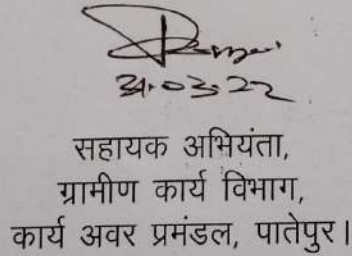 31.03.22
सहायक अभियंता,
ग्रामीण कार्य विभाग,
कार्य अवर प्रमंडल, पातेपुर।